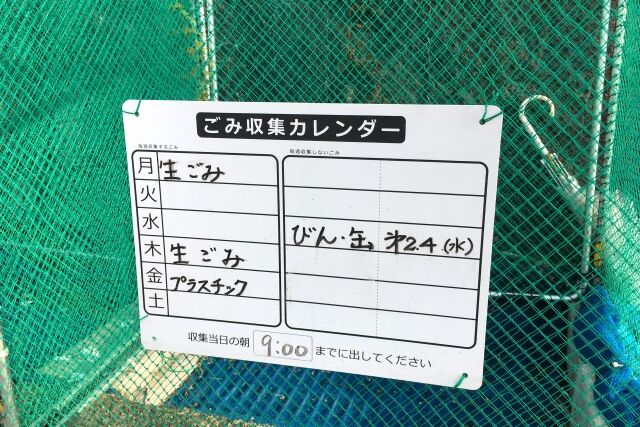 ごみ収集カレンダー
毎週収集するごみ
毎週収集しないごみ
月 生ごみ
火
水
びん・缶 第2.4(水)
木 生ごみ
金 プラスチック
土
収集当日の朝 9:00 までに出してください